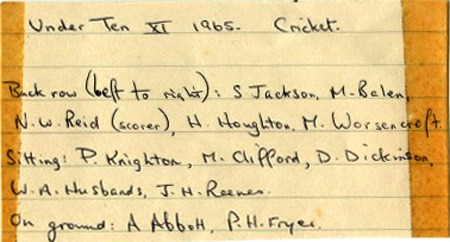 Under Ten XI 1965. Cricket.
Back row (left to right): S Jackson, M. Balen,
N. W. Reid (scorer), H. Houghton, M. Worsencroft.
Sitting: P. Knighton, M. Clifford, D. Dickinson,
W. A. Husbands, J. H. Reeves.
On ground: A Abbott, P. H. Fryer.